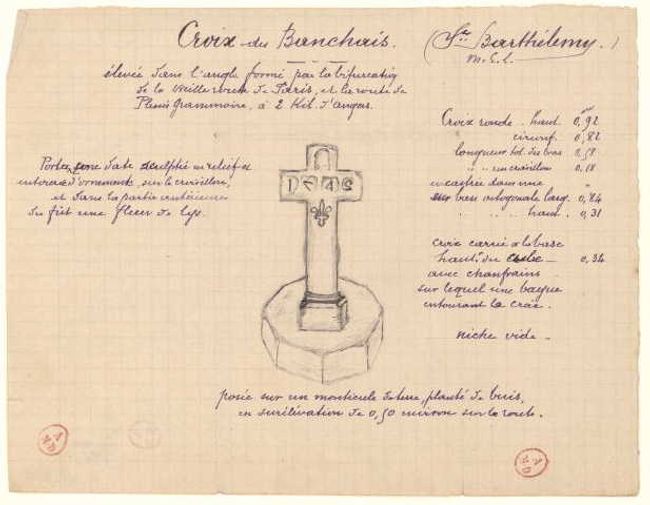 Croix du Banchais.
(St Barthélemy.)
M. & L.
élevée dans l'angle formé par la bifurcation
de la vieille route de Paris, et la route de
Plessis Grammoire, à 2 Kil. d'Angers.
Porte, une date sculptée en relief et
entourée d'ornements, sur le croisillon,
et dans la partie antérieure
du fût une fleur de lys.
Croix ronde. haut. 0,92
circonf. 0,82
longueur tot. des bras 0,58
" " un croisillon 0,18
encastrée dans une
base octogonale larg. 0,84
" " " haut. 0,31
croix carrée à la base
haut. du cube — 0,34
avec chanfrains
sur lequel une bague
entourant la croix.
niche vide —
posée sur un monticule de terre, planté de buis,
en surélévation de 0,50 environ sur la route.